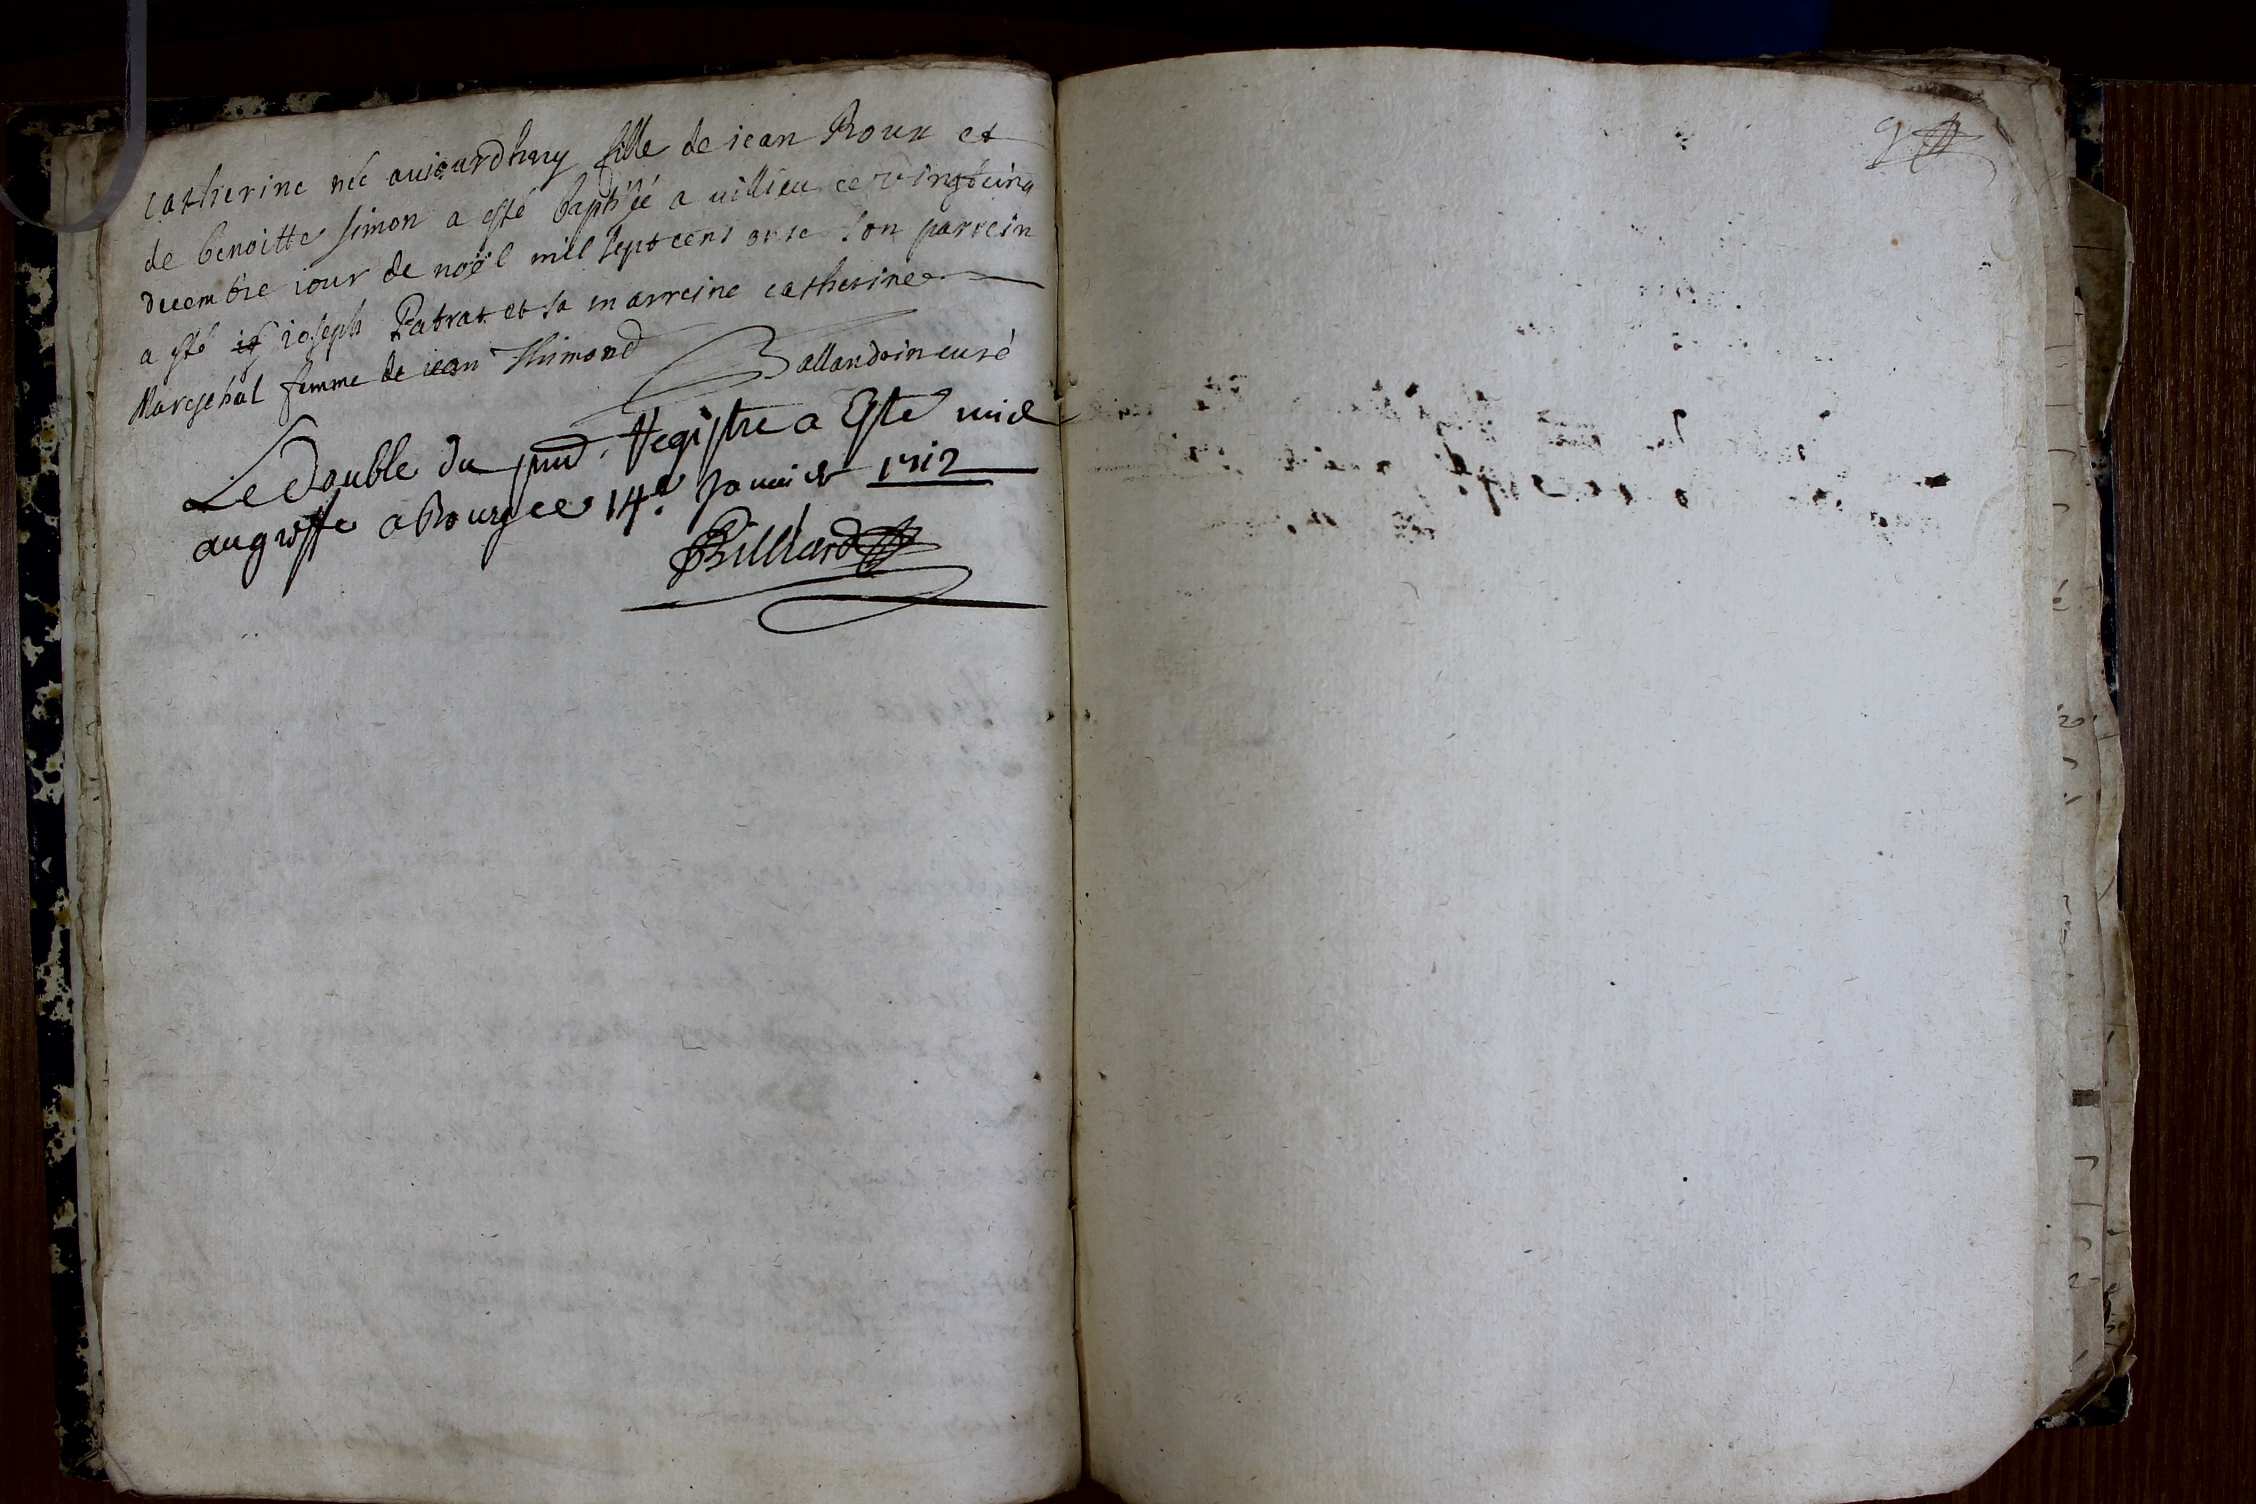 catherine née auiourdhuy fille de iean Roux et
de benoitte simon a esté baptisée a villieu ce vingtcinq
decembre iour de noël mil septcens onze son parrein
a esté ioseph Patrat et sa marreine catherine
Mareschal femme de iean Thimond Ballandrin curé
Le double du pnt. Registre a Esté mis
au greffe a Bourg ce 14e. Janvier 1712
Billiard
9